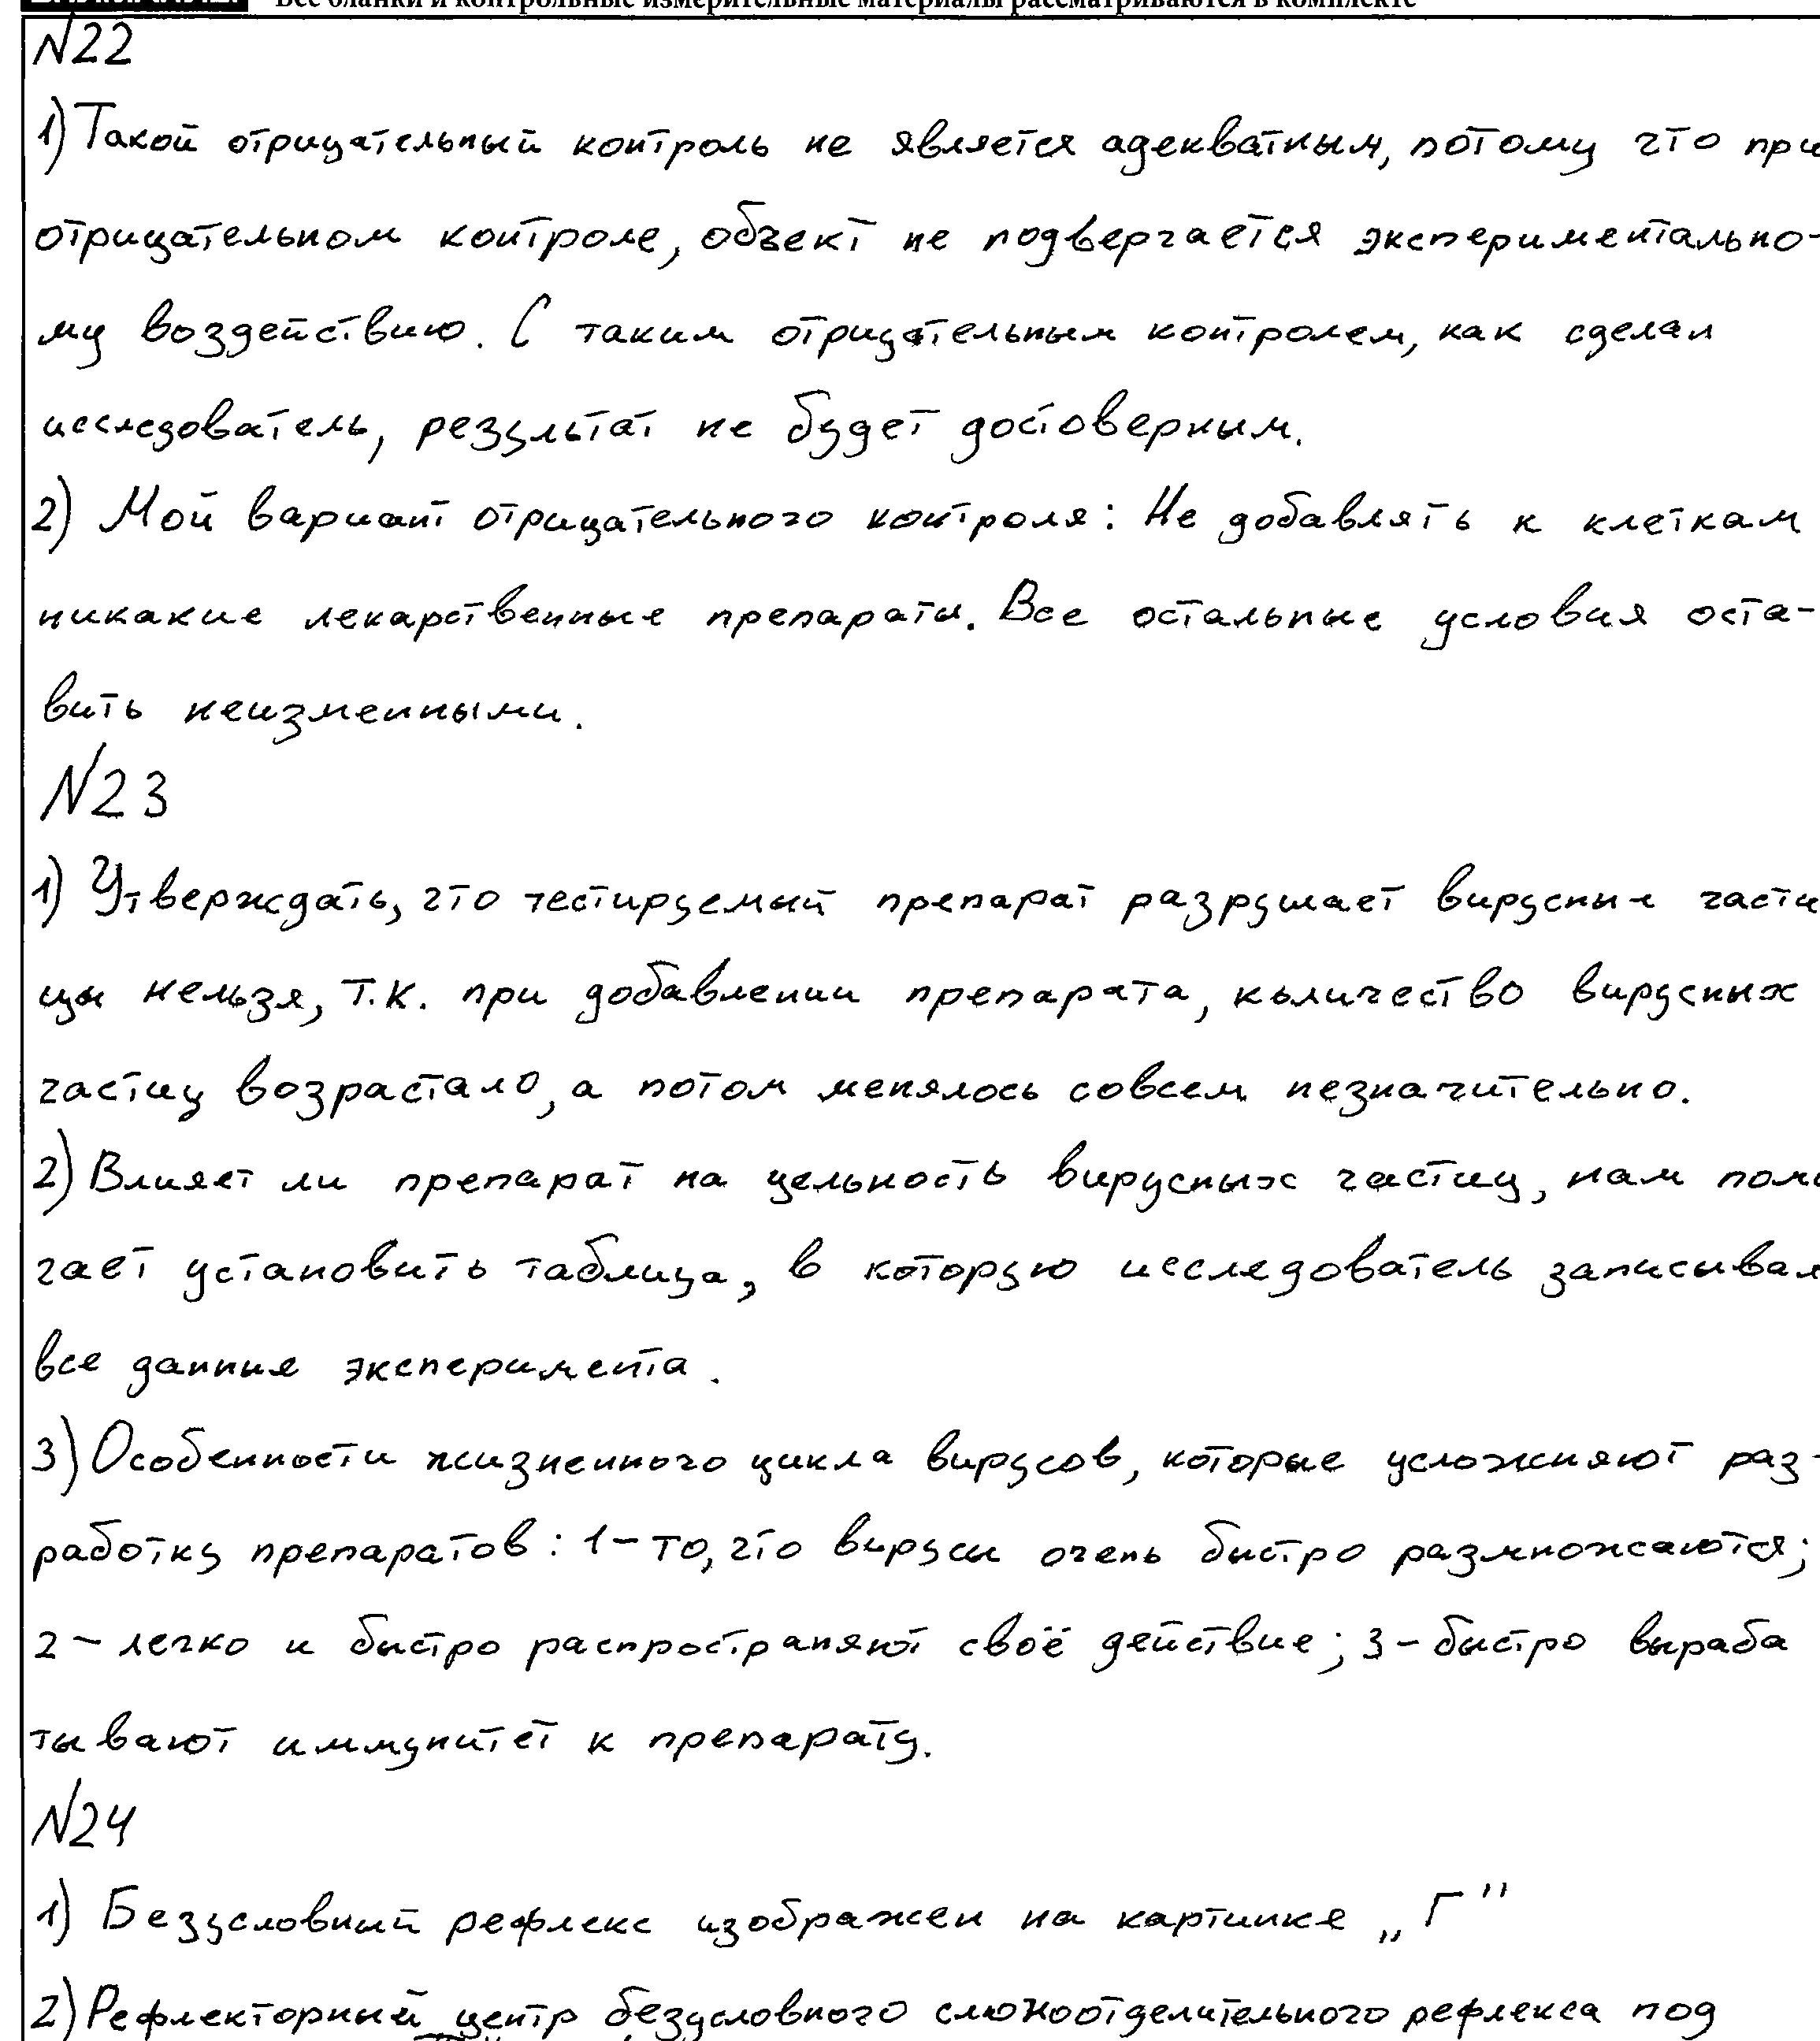 Все бланки и контрольные измерительные материалы рассматриваются в комплекте
N22
1) Такой отрицательный контроль не является адекватным, потому что при
отрицательном контроле, объект не подвергается экспериментально-
му воздействию. С таким отрицательным контролем, как сделал
исследователь, результат не будет достоверным.
2) Мой вариант отрицательного контроля: Не добавлять к клеткам
никакие лекарственные препараты. Все остальные условия оста-
вить неизменными.
N23
1) Утверждать, что тестируемый препарат разрушает вирусные части
цы нельзя, т.к. при добавлении препарата, количество вирусных
частиц возрастало, а потом менялось совсем незначительно.
2) Влияет ли препарат на цельность вирусных частиц, нам помо
гает установить таблица, в которую исследователь записывал
все данные эксперимента.
3) Особенности жизненного цикла вирусов, которые усложняют раз-
работку препаратов: 1 – то, что вирусы очень быстро размножаются;
2 – легко и быстро распространяют своё действие; 3 – быстро выраба
тывают иммунитет к препарату.
N24
1) Безусловный рефлекс изображен на картинке „Г"
2) Рефлекторный центр безусловного слюноотделительного рефлекса под